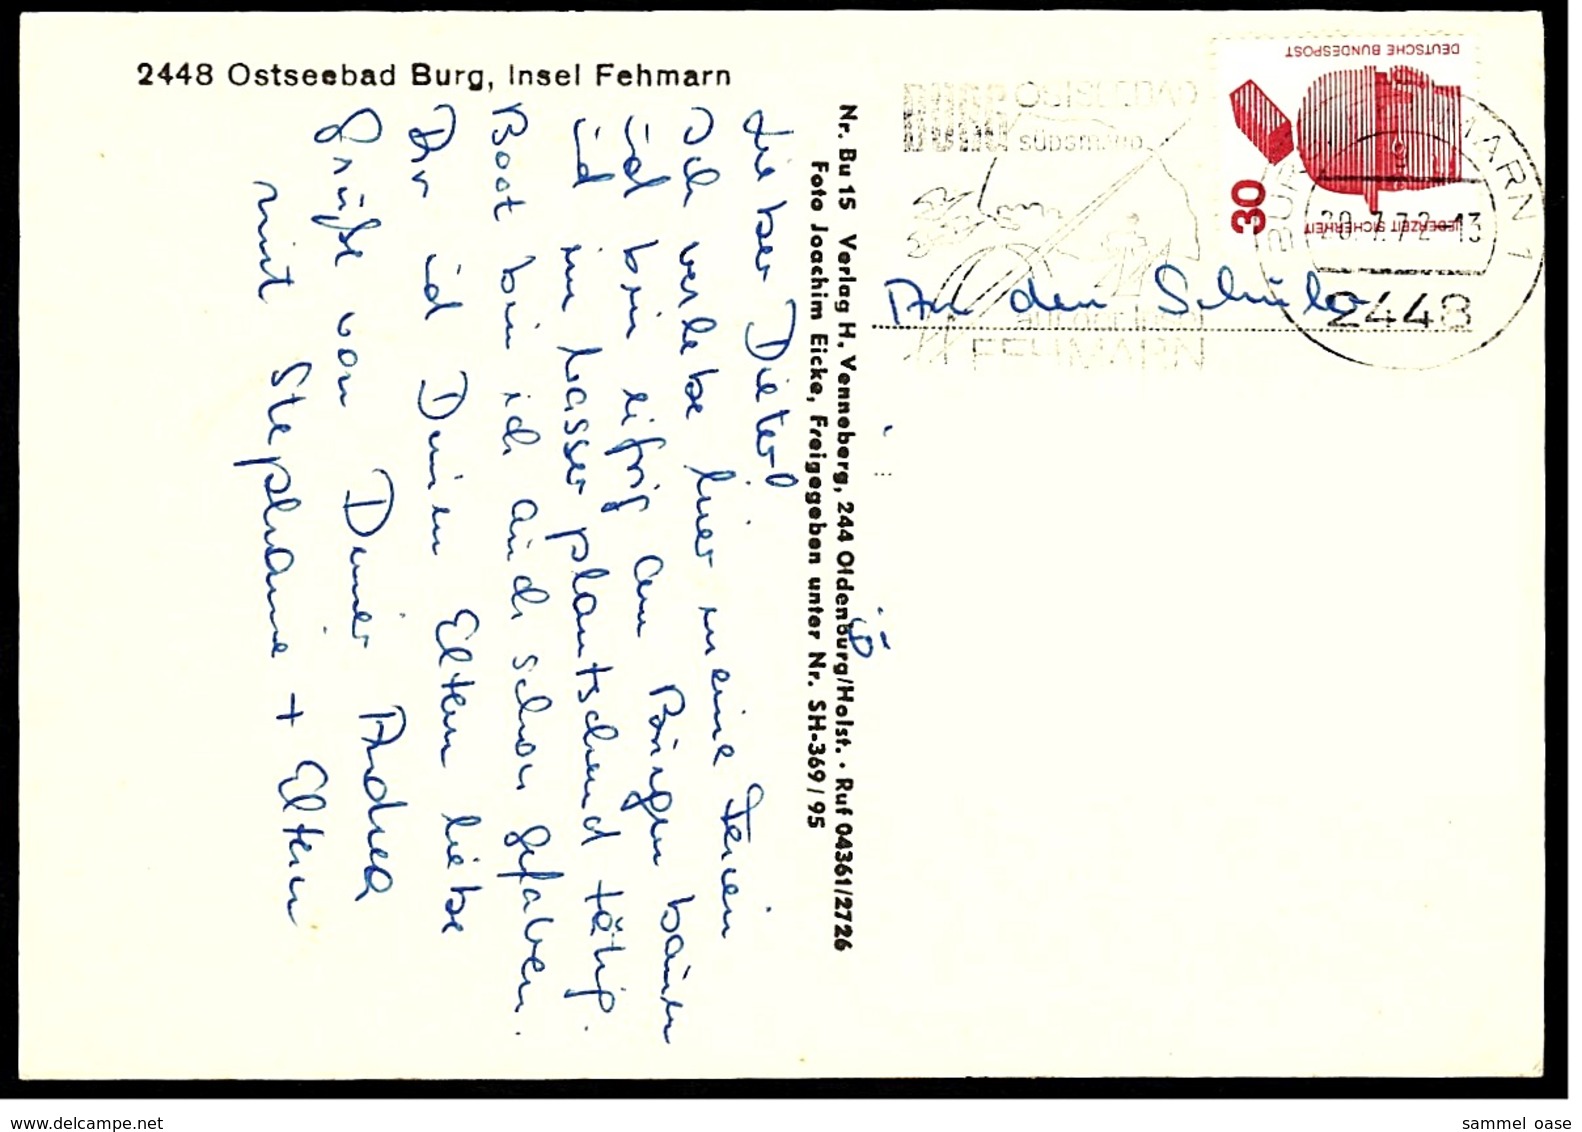 2448 Ostseebad Burg, Insel Fehmarn
Lieber Dieter!
Ich verlebe hier meine Ferien
und bin eifrig am Burgen bauen
und im Wasser plantschend tätig.
Boot bin ich auch schon gefahren.
Dir und Deinen Eltern liebe
Grüße von Deiner Andrea
mit Stephanie + Eltern
Nr. Bu 15 Verlag H. Venneberg, 244 Oldenburg/Holst. · Ruf 04361/2726
Foto Joachim Eicke, Freigegeben unter Nr. SH-369/95
DEUTSCHE BUNDESPOST
30
JEDERZEIT SICHERHEIT
OSTSEEBAD
BURG
FEHMARN
20.7.72-13
2448
An den Schüler
www.delcampe.net
sammel oase